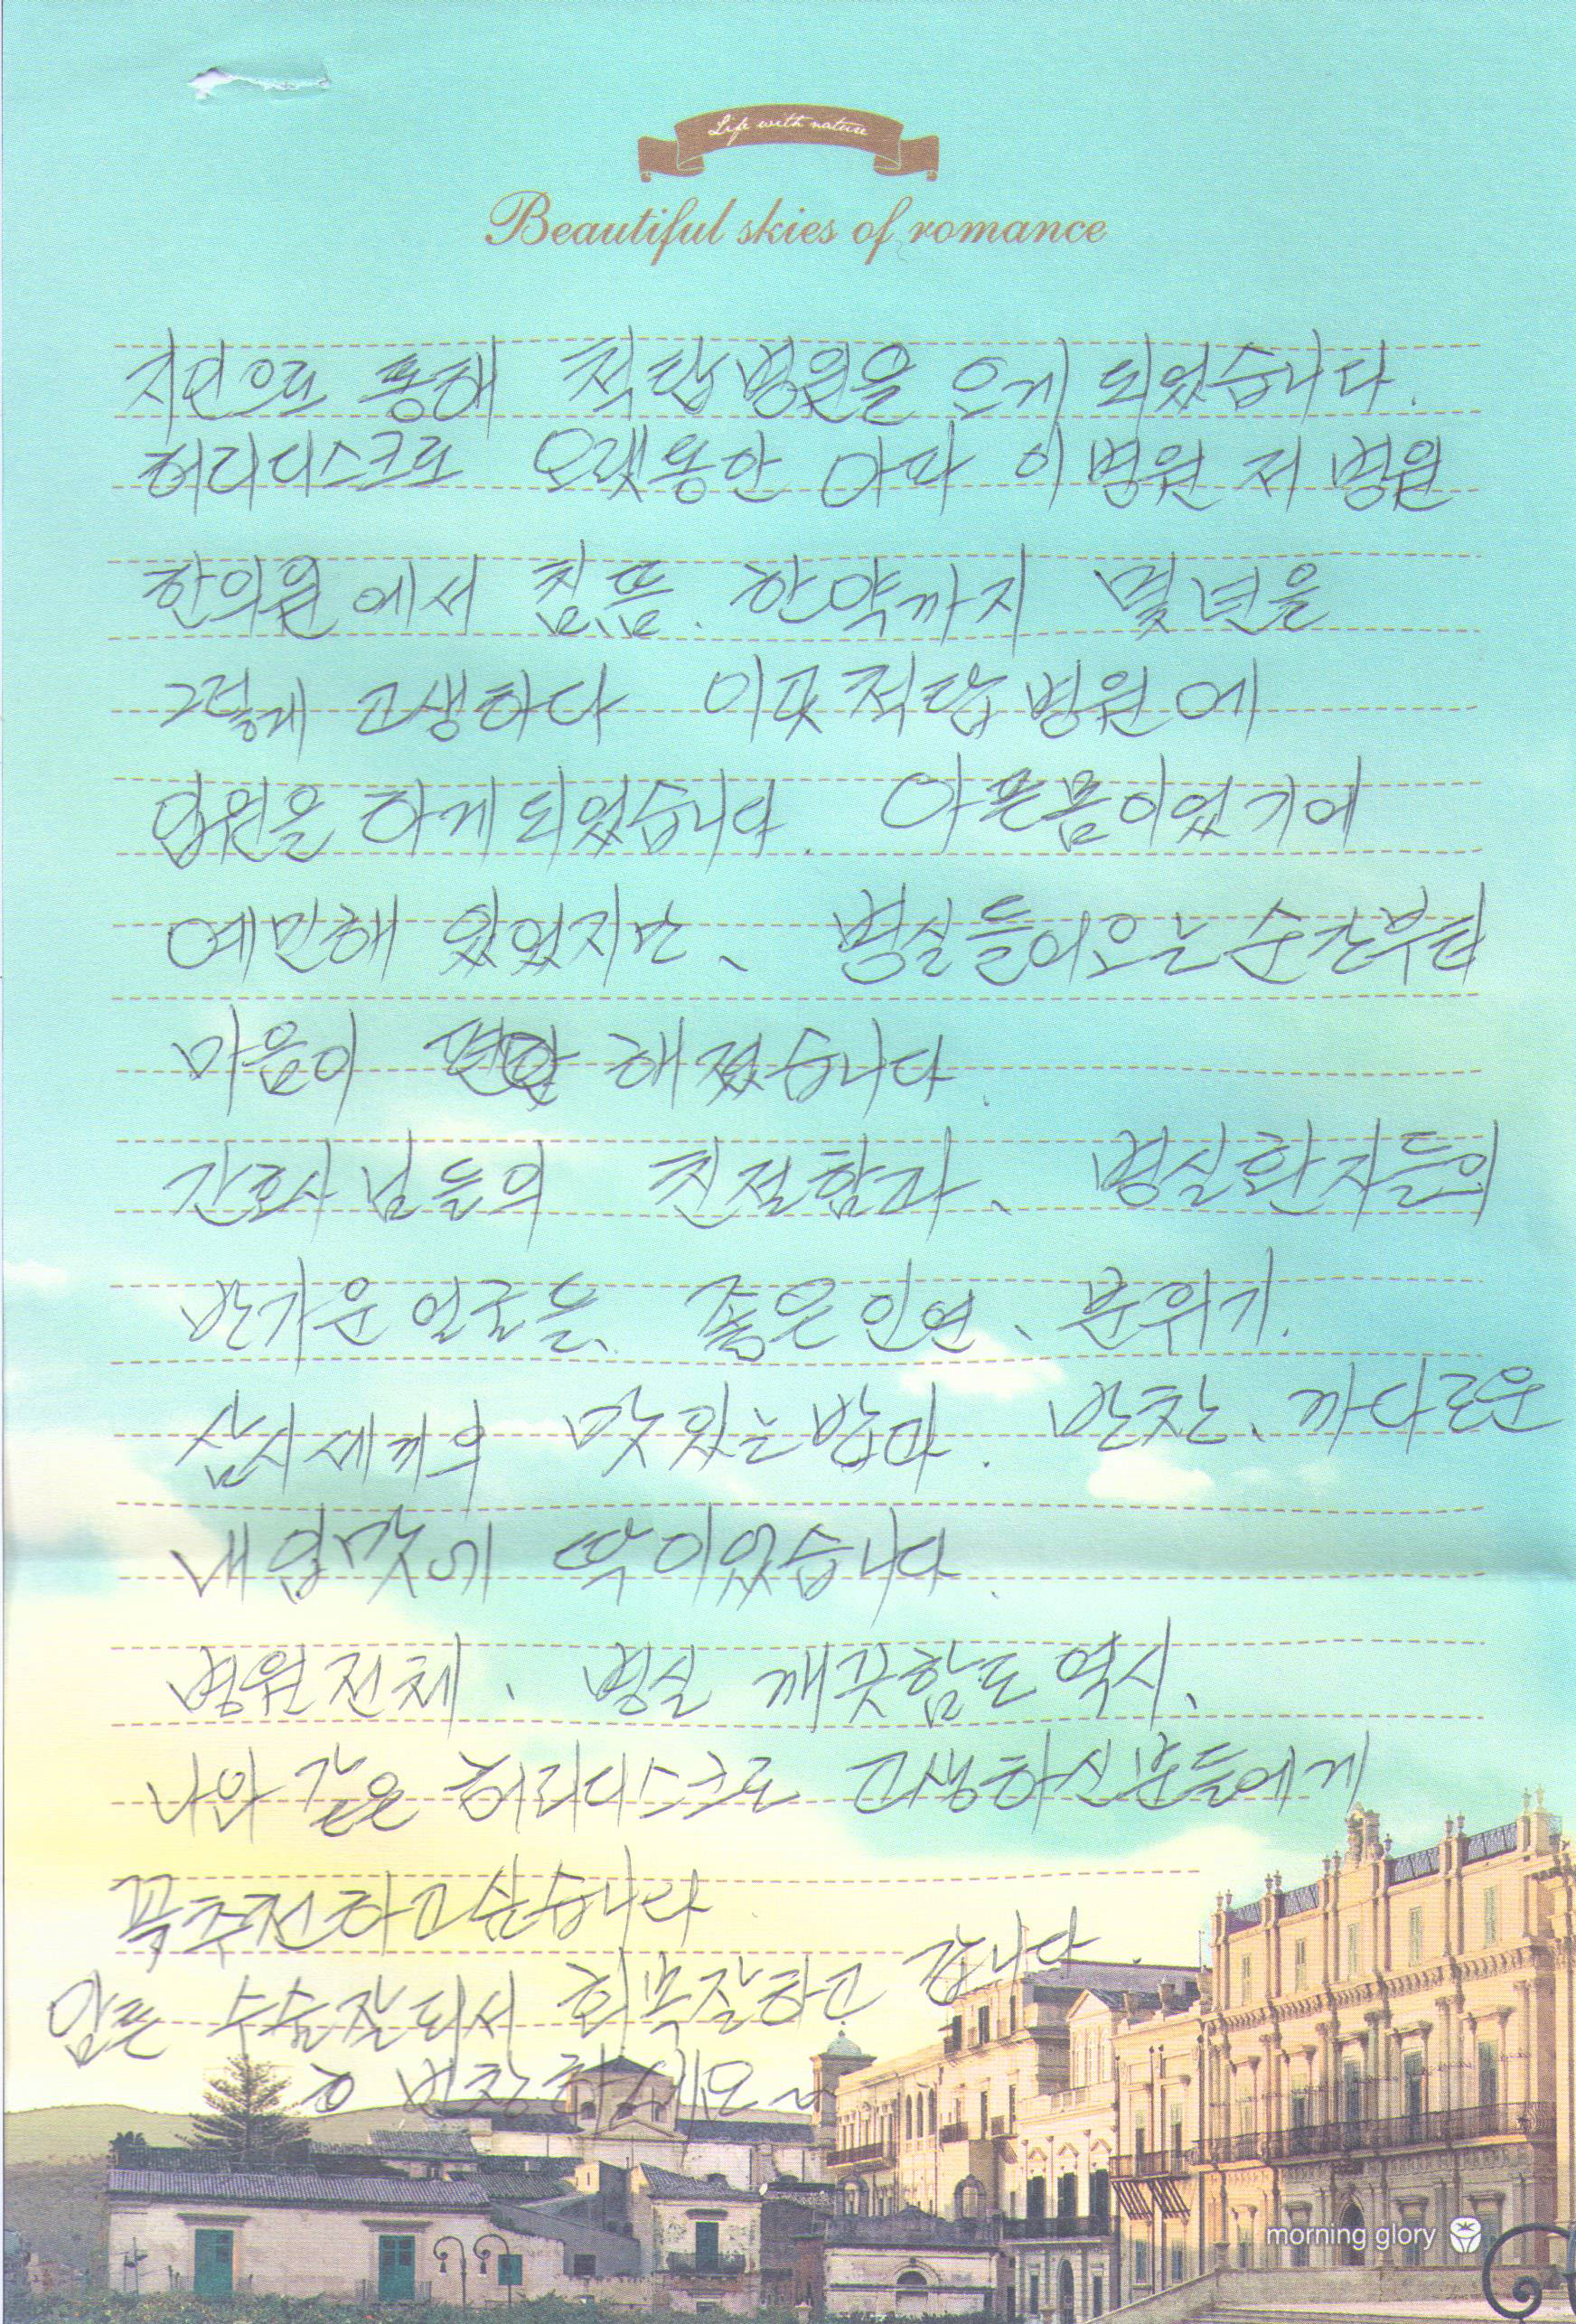 Life with nature
Beautiful skies of romance
지인으로 통해 척탑병원을 오게 되었습니다.
허리디스크로 오랫동안 아파 이병원 저 병원
한의원에서 침, 뜸. 한약까지 몇년을
그렇게 고생하다 이곳 척탑병원에
입원을 하게 되었습니다. 아픈몸이었기에
예민해 있었지만, 병실들어오는 순간부터
마음이 편안해졌습니다.
간호사님들의 친절함과, 병실환자들의
반가운 얼굴들, 좋은인연, 분위기.
삼시세끼의 맛있는밥과. 반찬, 까다로운
내입맛에 딱이었습니다.
병원전체, 병실 깨끗함도 역시,
나와 같은 허리디스크로 고생하신분들에게
꼭추천하고싶습니다
암튼 수술잘되서 회복잘하고 갑니다.
번창하세요~
morning glory